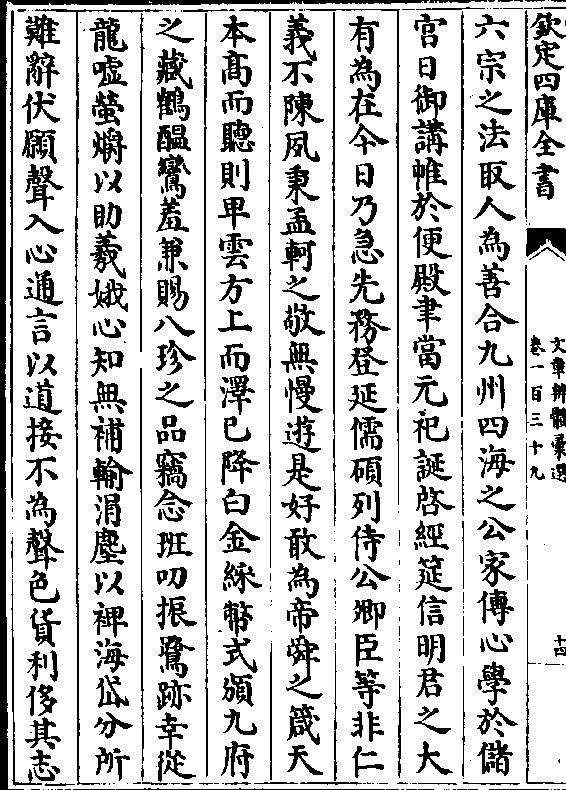 欽定四庫全書
文章辨體彙選
卷一百三十九
十四
六宗之法取人為善合九州四海之公家傳心學於儲
宫日御講帷於便殿聿當元祀誕啓經筵信明君之大
有為在今日乃急先務登延儒碩列侍公卿臣等非仁
義不陳夙秉孟軻之敬無慢遊是好敢為帝舜之箴天
本髙而聽則卑雲方上而澤已降白金綵幣式頒九府
之藏鶴醖鸞羞兼賜八珍之品竊念班叨振鷺跡幸從
龍嘘螢爝以助羲娥心知無補輸涓塵以裨海岱分所
難辭伏願聲入心通言以道接不為聲色貨利侈其志